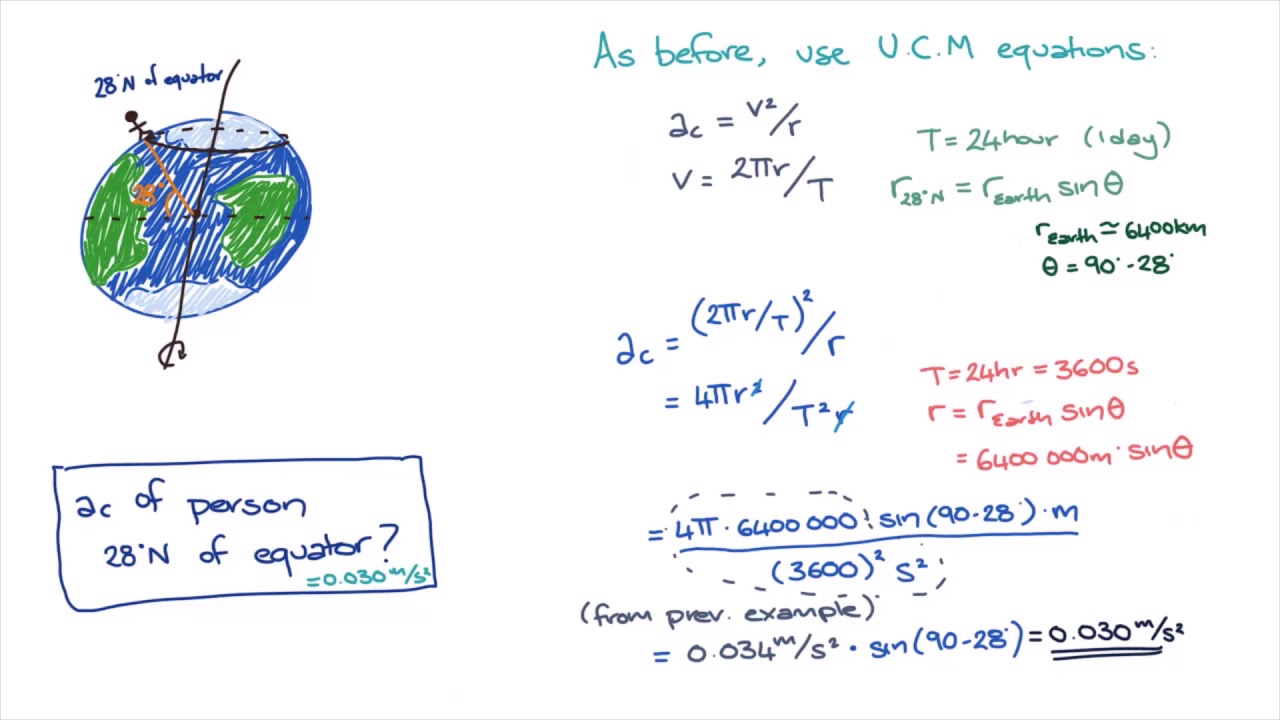 28°N of equator
28°
ac of person
28°N of equator?
=0.030 m/s²
As before, use U.C.M equations:
ac = v²/r
v = 2πr/T
T = 24hour (1day)
r28°N = rEarth sinθ
rEarth ≃ 6400km
θ = 90°-28°
ac = (2πr/T)²/r
= 4πr²/T²r
T = 24hr = 3600s
r = rEarth sinθ
= 6400 000m · sinθ
= 4π · 6400 000 · sin(90-28°) · m
(3600)² s²
(from prev. example)
= 0.034 m/s² · sin(90-28°) = 0.030 m/s²